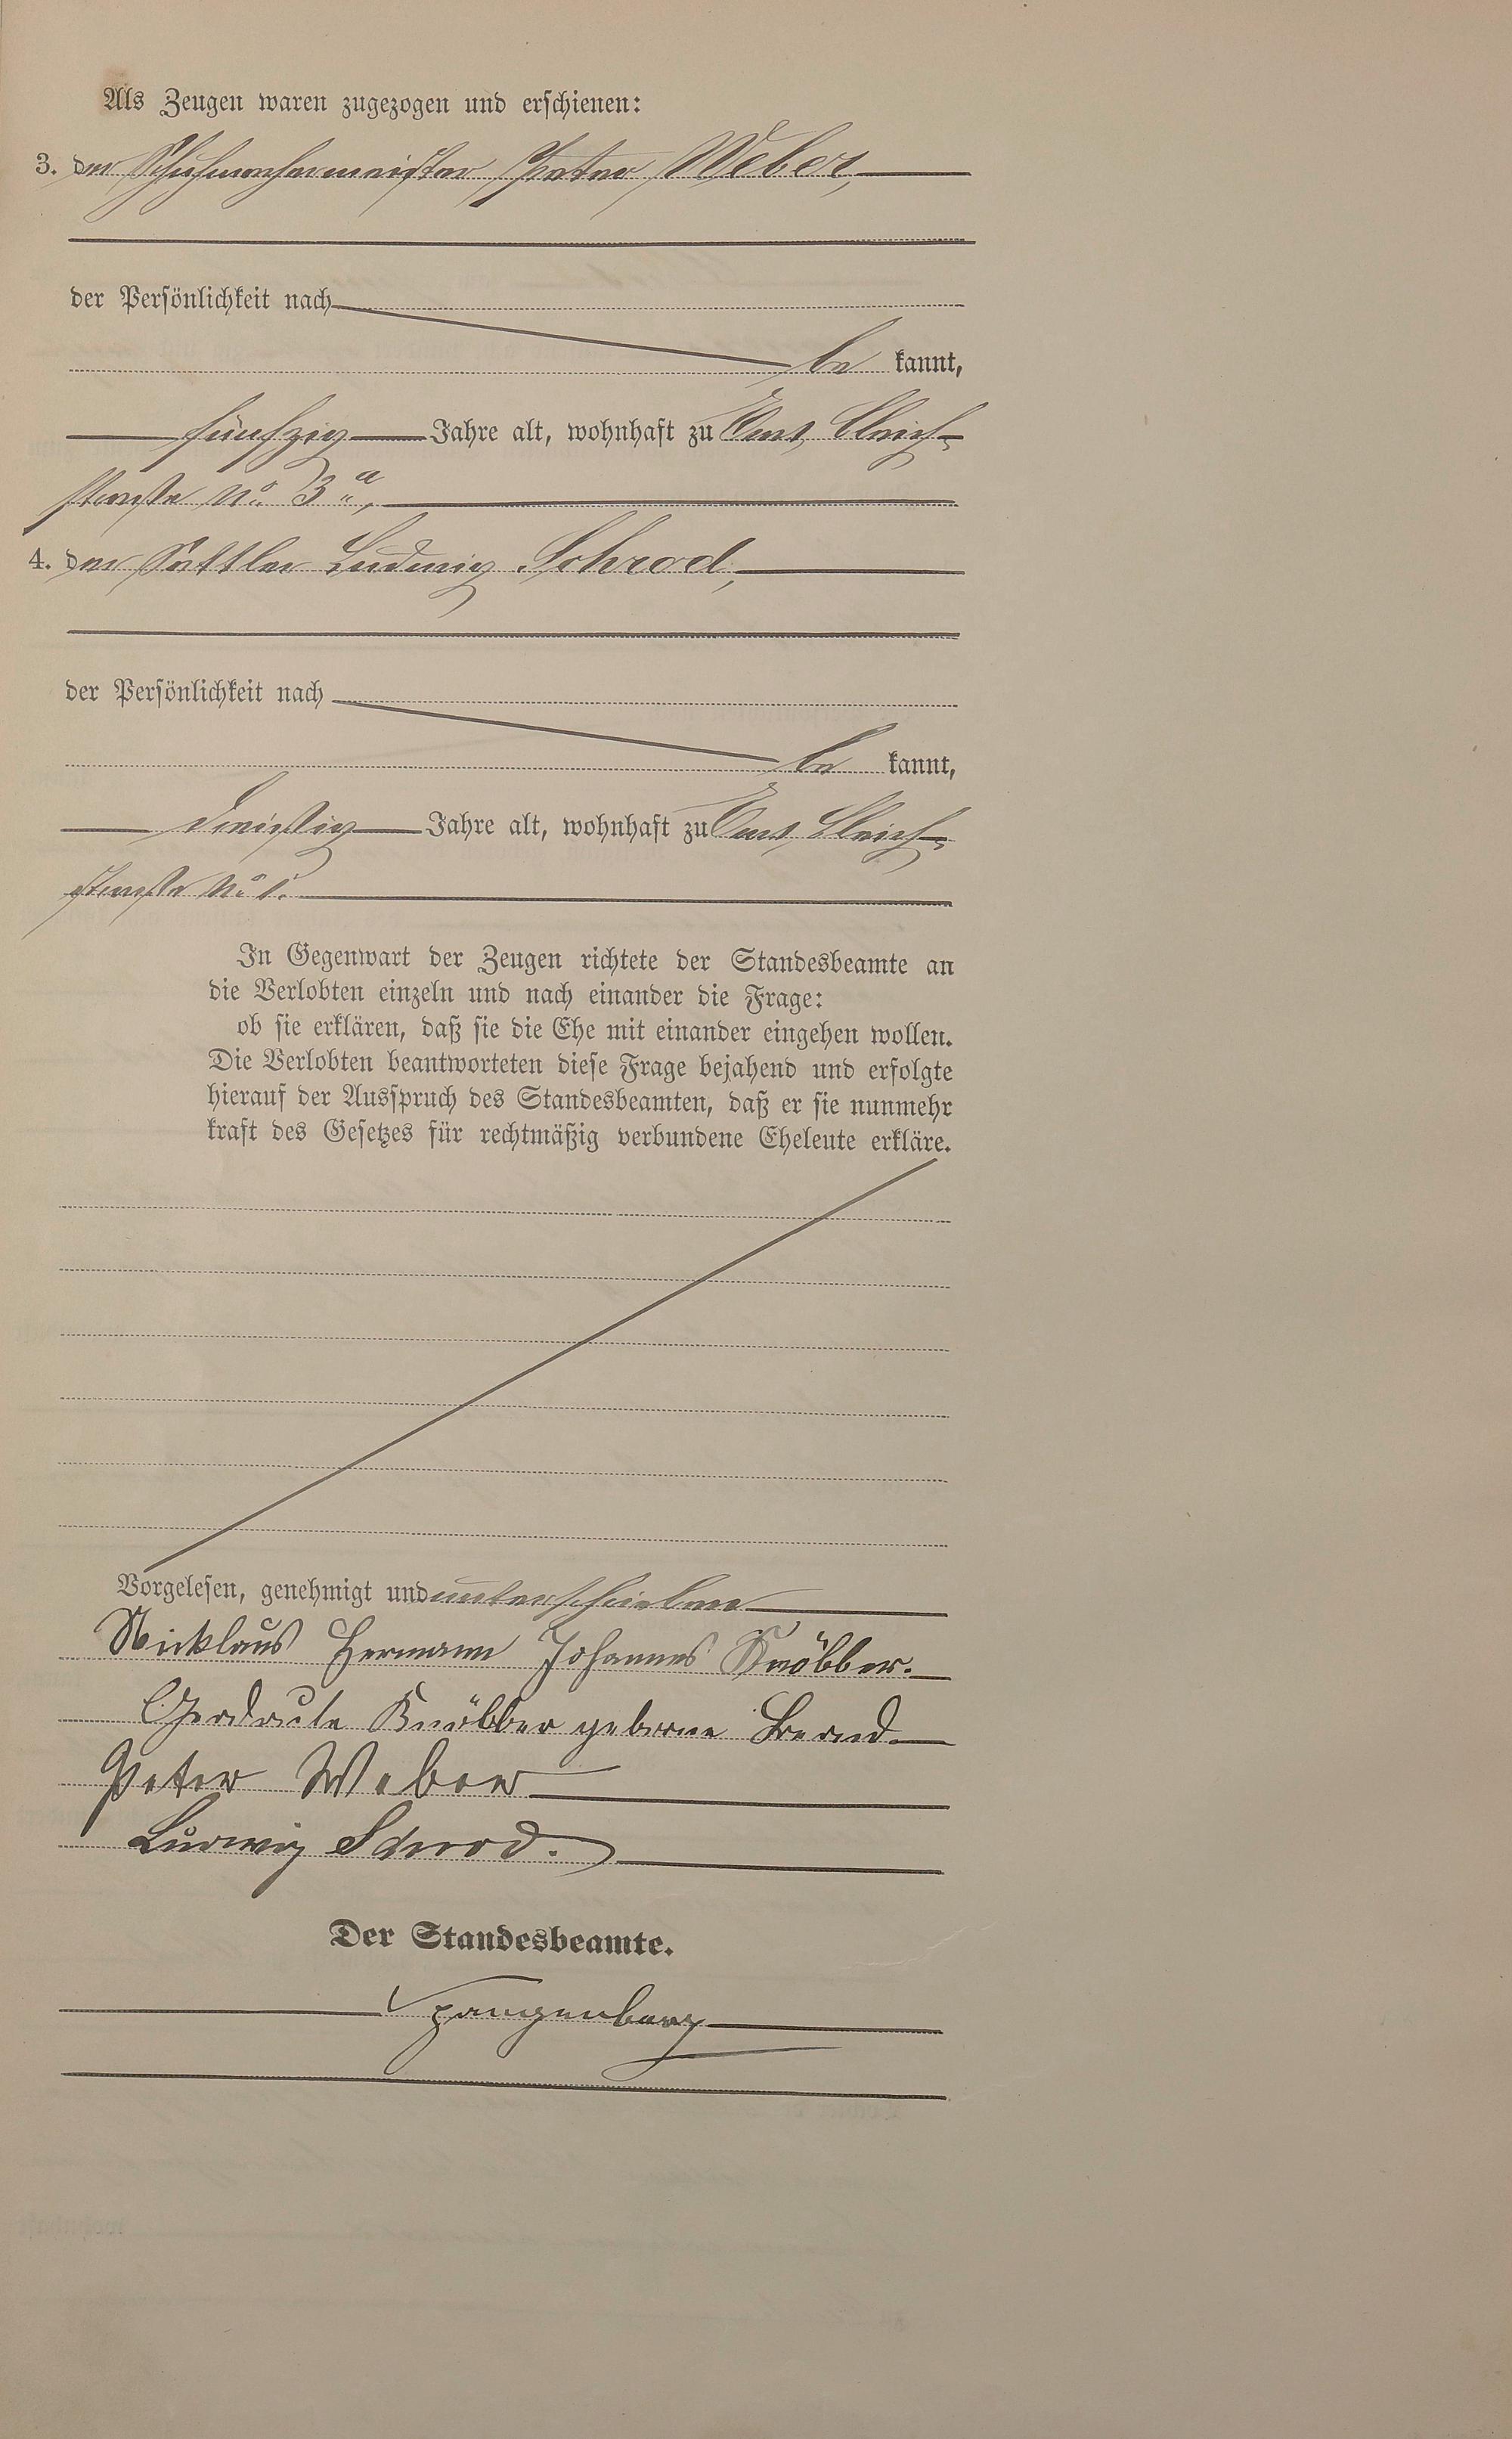 Als Zeugen waren zugezogen und erschienen:
3. der Schuhmachermeister Peter Weber,
der Persönlichkeit nach
be kannt,
fünfzig Jahre alt, wohnhaft zu Ems, Bleich-
straße No. 3 a,
4. der Sattler Ludwig Schrod,
der Persönlichkeit nach
be kannt,
dreißig Jahre alt, wohnhaft zu Ems, Bleich-
straße No. 1.
In Gegenwart der Zeugen richtete der Standesbeamte an
die Verlobten einzeln und nach einander die Frage:
ob sie erklären, daß sie die Ehe mit einander eingehen wollen.
Die Verlobten beantworteten diese Frage bejahend und erfolgte
hierauf der Ausspruch des Standesbeamten, daß er sie nunmehr
kraft des Gesetzes für rechtmäßig verbundene Eheleute erkläre.
Vorgelesen, genehmigt und unterschrieben
Nicklaus Hermann Johannes Knöbber.
Gerdrute Knöbber geborne Bernd
Peter Weber
Ludwig Schrod.
Der Standesbeamte.
Spangenberg